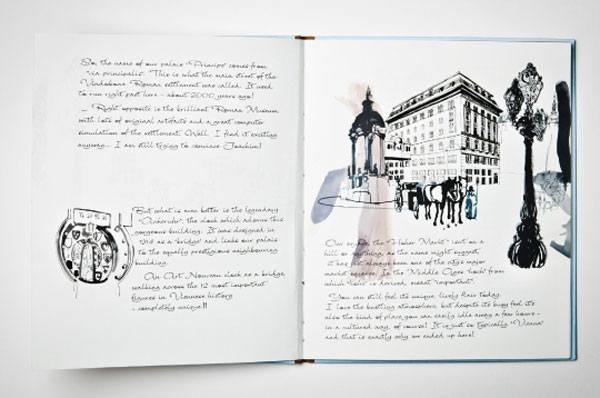 So, the name of our palais "Principe" comes from
"via principalis". This is what the main street of the
Vindobona Roman settlement was called. It used
to run right past here - about 2000 years ago!
... Right opposite is the brilliant Roman Museum
with lots of original artifacts and a great computer
simulation of the settlement. Well, I find it exciting
anyway... I am still trying to convince Joachim!
But what is even better is the legendary
"Ankeruhr", the clock which adorns this
gorgeous building. It was designed in
as a "bridge" and links our palais
to the equally prestigious neighbouring
building.
An Art Nouveau clock as a bridge,
walking across the 12 most important
figures in Viennese history
- completely unique!!
Our the "Hoher Markt" isn't on a
hill or anything, as the name might suggest,
it has always been one of the city's major
market squares. In the Middle Ages "hoch" from
which "hoher" is derived, meant "important".
You can still feel its unique, lively flair today.
I love the bustling atmosphere, but despite its busy feel, it's
also the kind of place you can easily idle away a few hours -
in a cultured way, of course! It is just so typically "Vienna"
and that is exactly why we ended up here!